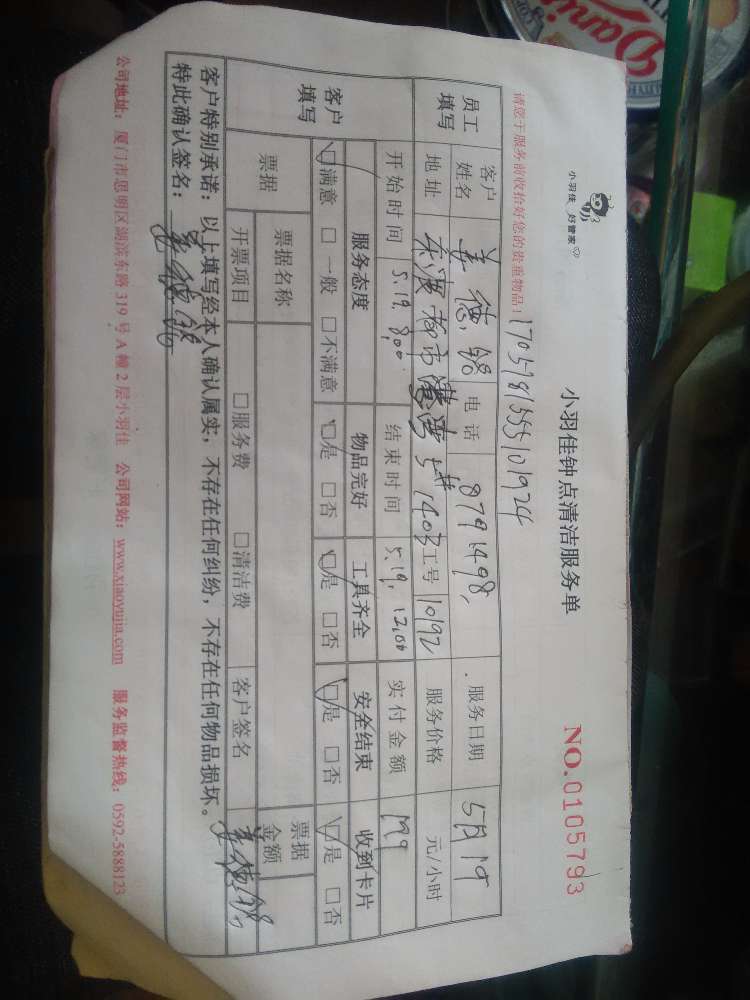 小羽佳 好管家
小羽佳钟点清洁服务单
NO.0105793
请您于服务前收拾好您的贵重物品！
员工填写
客户姓名
姜德
电话
8791498
服务日期
5月19
地址
东渡都市
5# 1403
工号
10192
服务价格
元/小时
开始时间
5.19. 8,00
结束时间
5.19. 12,00
实付金额
客户填写
服务态度
物品完好
工具齐全
安全结束
收到卡片
☑满意 □一般 □不满意
☑是 □否
☑是 □否
☑是 □否
☑是 □否
票据
票据名称
票据金额
开票项目
□服务费 □清洁费
客户签名
客户特别承诺：以上填写经本人确认属实，不存在任何纠纷，不存在任何物品损坏。
特此确认签名：
公司地址：厦门市思明区湖滨东路319号A幢2层小羽佳 公司网站：www.xiaoyujia.com 服务监督热线：0592-5888123
Dani